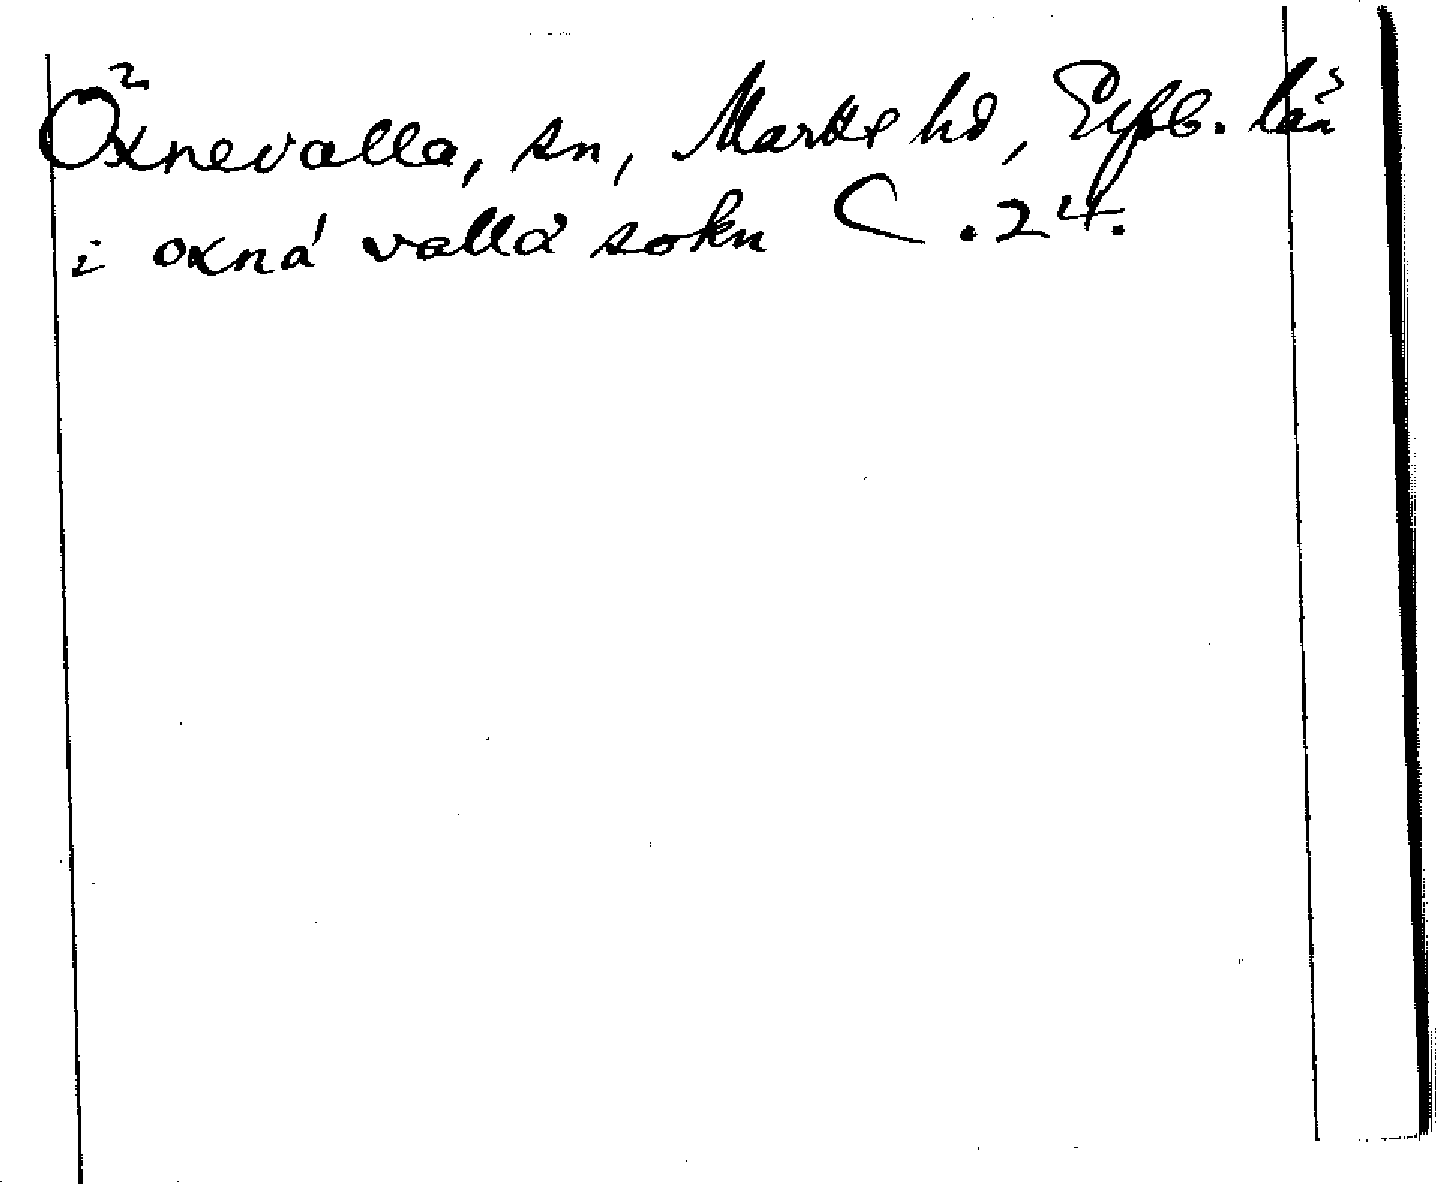 Öxnevalla, sn, Marks hd, Elfsb. län
i oxná valla sokn C. 24.